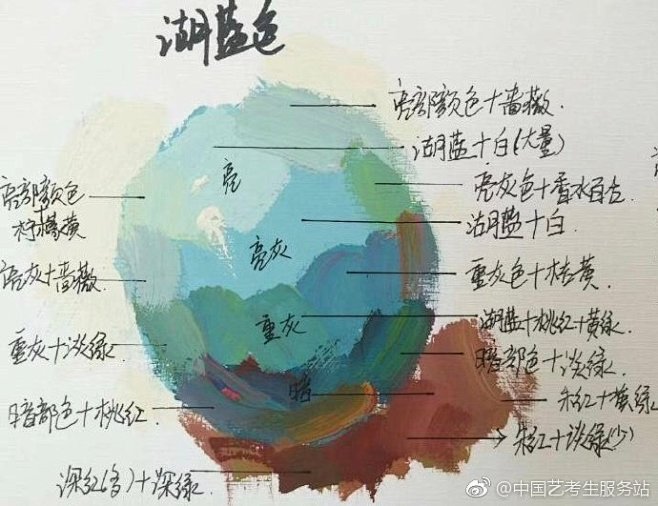 湖蓝色
亮部颜色+蔷薇.
湖蓝+白(大量)
亮
亮灰色+香水百合
亮部颜色
柠檬黄
湖蓝+白.
亮灰
重灰色+桔黄
亮灰+蔷薇.
湖蓝+桃红+黄绿.
重灰
重灰+淡绿.
暗部色+淡绿.
暗
朱红+黄绿
暗部色+桃红.
朱红+淡绿(少)
深红(多)+深绿.
@中国艺考生服务站